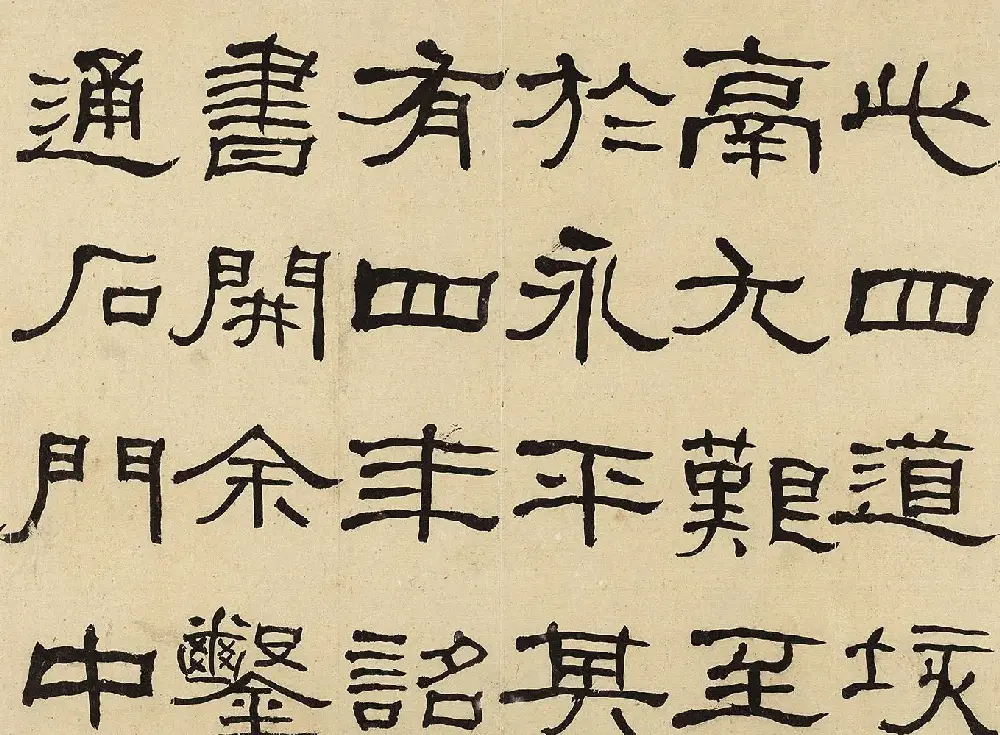 此四道垓
鬲尤艱至
於永平其
有四年詔
書開余鑿
通石門中